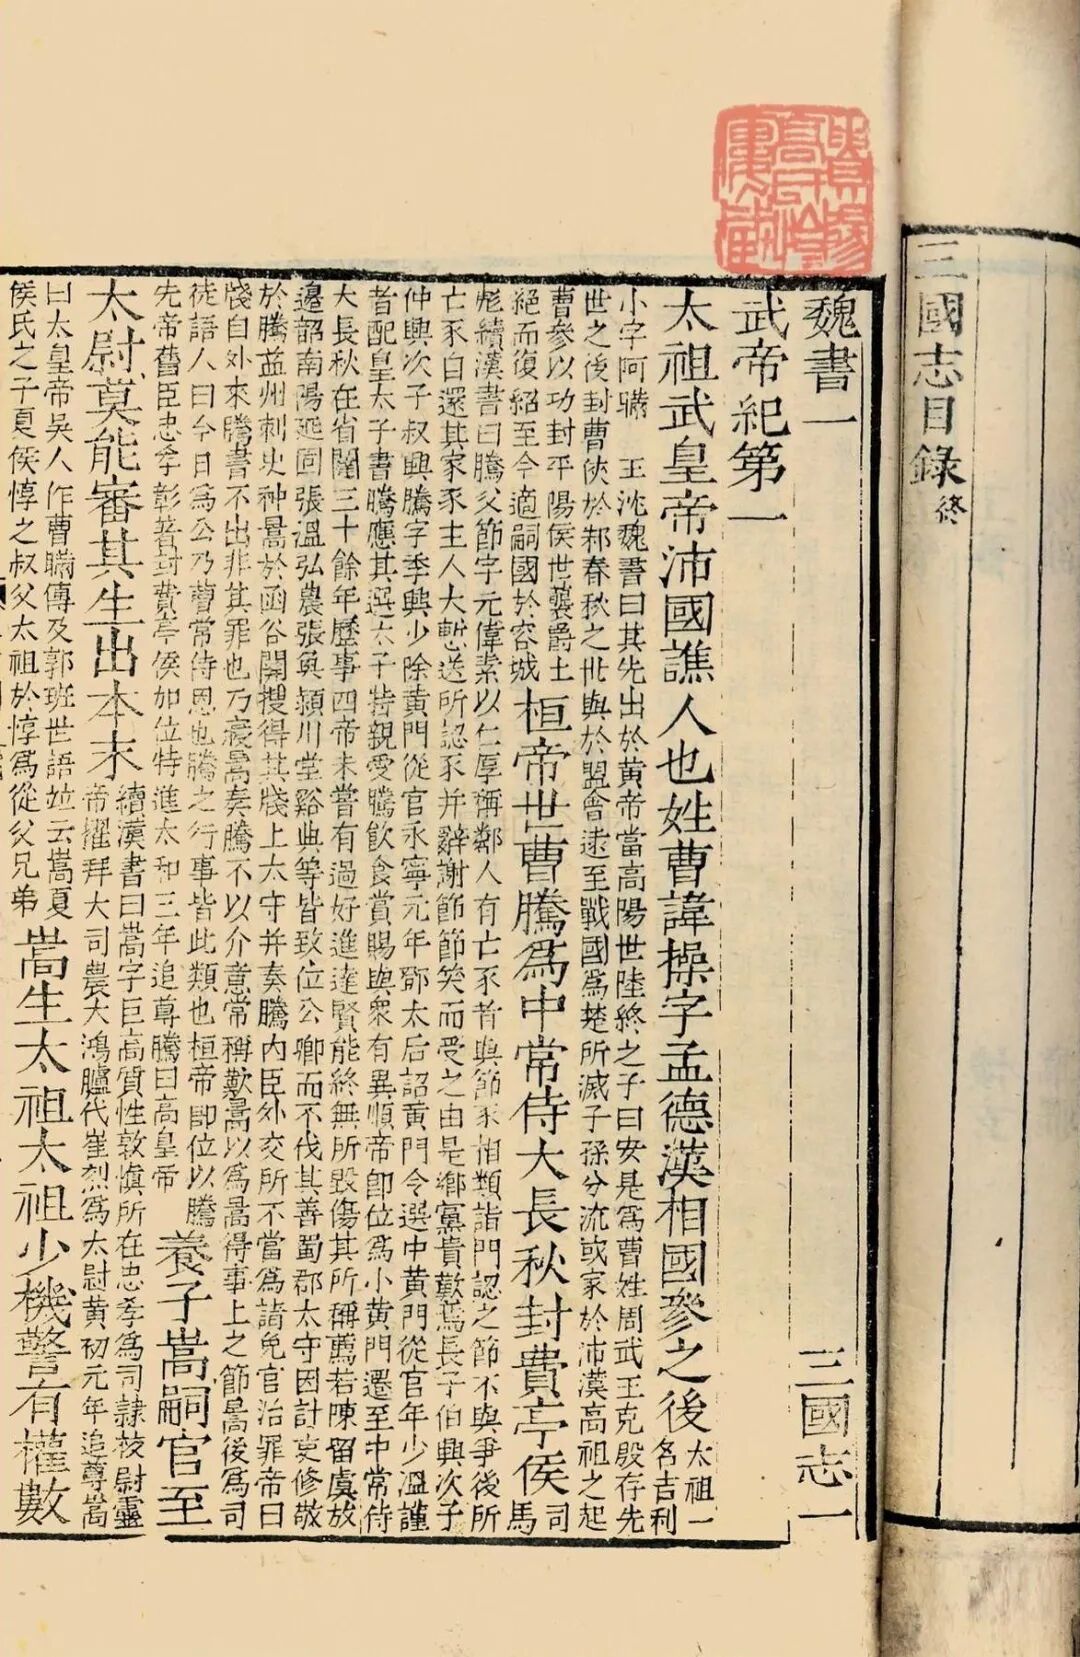 三國志目錄終
魏書一　三國志一
武帝紀第一
太祖武皇帝沛國譙人也姓曹諱操字孟德漢相國參之後
太祖一
名吉利
小字阿瞞　王沈魏書曰其先出於黃帝當高陽世陸終之子曰安是爲曹姓周武王克殷存先
世之後封曹俠於邾春秋之世與於盟會逮至戰國爲楚所滅子孫分流或家於沛漢高祖之起
曹參以功封平陽侯世襲爵土
絕而復紹至今適嗣國於容城
桓帝世曹騰爲中常侍大長秋封費亭侯
司
馬
彪續漢書曰騰父節字元偉素以仁厚稱鄰人有亡豕者與節豕相類詣門認之節不與爭後所
亡豕自還其家豕主人大慙送所認豕并辭謝節節笑而受之由是鄉黨貴歎焉長子伯興次子
仲興次子叔興騰字季興少除黃門從官永寧元年鄧太后詔黃門令選中黃門從官年少溫謹
者配皇太子書騰應其選太子特親愛騰飲食賞賜與衆有異順帝卽位爲小黃門遷至中常侍
大長秋在省闥三十餘年歷事四帝未嘗有過好進達賢能終無所毀傷其所稱薦若陳留虞放
邊韶南陽延固張溫弘農張奐潁川堂谿典等皆致位公卿而不伐其善蜀郡太守因計吏修敬
於騰益州刺史种暠於函谷關搜得其牋上太守并奏騰內臣外交所不當爲請免官治罪帝曰
牋自外來騰書不出非其罪也乃寢暠奏騰不以介意常稱歎暠以爲暠得事上之節暠後爲司
徒語人曰今日爲公乃曹常侍恩也騰之行事皆此類也桓帝卽位以騰
先帝舊臣忠孝彰著封費亭侯加位特進太和三年追尊騰曰高皇帝
養子嵩嗣官至
太尉莫能審其生出本末
續漢書曰嵩字巨高質性敦慎所在忠孝爲司隸校尉靈
帝擢拜大司農大鴻臚代崔烈爲太尉黃初元年追尊嵩
曰太皇帝吳人作曹瞞傳及郭班世語竝云嵩夏
侯氏之子夏侯惇之叔父太祖於惇爲從父兄弟
嵩生太祖太祖少機警有權數